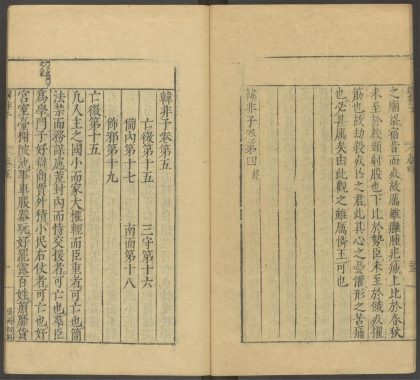 之而梁宿昔而死故厲雖癰腫疕瘍上比於春秋
未至於絞頸射股也下比於近世未至於餓死擢
筋也故劫殺死亡之君此其心之憂懼形之苦痛
也必甚厲矣由此觀之雖厲憐王可也
韓非子卷第四
韓非子卷第五
亡徵第十五 三守第十六
備內第十七 南面第十八
飾邪第十九
亡徵第十五
凡人主之國小而家大權輕而臣重者可亡也簡
法禁而務謀慮荒封內而恃交援者可亡也羣臣
爲學門子好辯商賈外積小民右仗者可亡也好
宮室臺榭陂池事車服器玩好罷露百姓煎靡貨